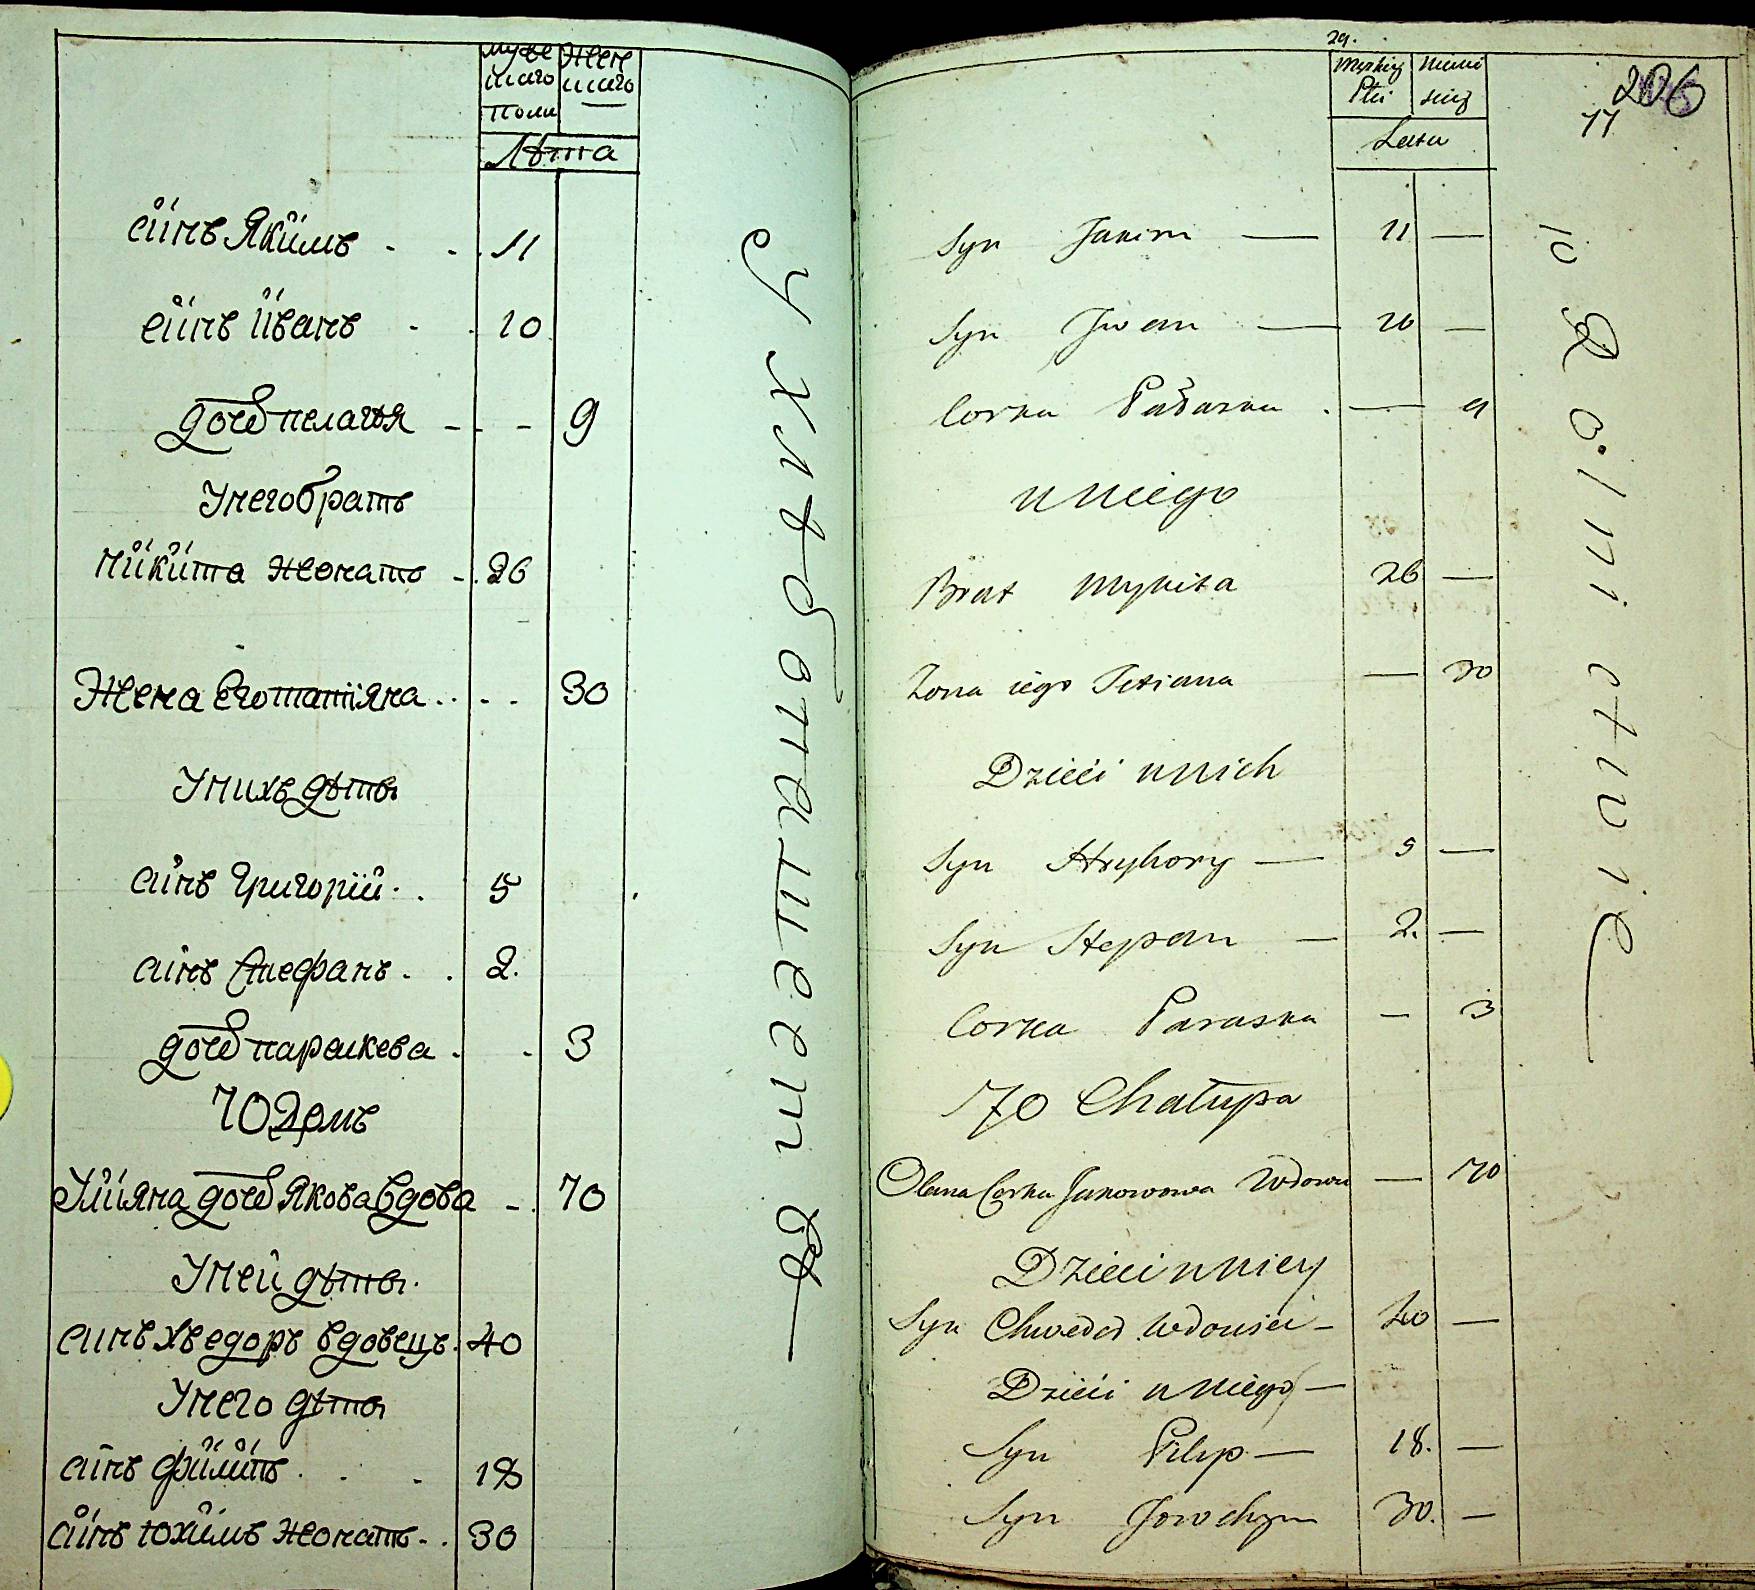 мужескаго полу
женскаго
Лѣта
сiнъ Якiмъ 11
сiнъ iванъ 10
дочь пелагѣя 9
Унего братъ
нiкiта жонатъ 26
Жена Его татiяна 30
Унихъ дѣты
сiнъ Григорiй 5
сiнъ Стефанъ 2.
дочь параскева 3
70 Домъ
Улiяна дочь Якова Вдова 70
Уней дѣты
синъ хведоръ вдовецъ 40
Унего дѣты
сiнъ фiлiпъ 18
сiнъ юхiмъ жонатъ 30
у хлѣбопашествѣ
29.
Męskiey Płci
Lata
206
77
Syn Jakim — 11 —
Syn Jwan — 10 —
Corka Pałaszka — 9
u niego
Brat Mykita 26 —
Zona iego Tetiana — 30
Dzieci u nich
Syn Hryhory — 5 —
Syn Stepan — 2. —
Corka Paraska — 3
70 Chałupa
Olana Corka Jakowowa Wdowa — 70
Dzieci u niey
Syn Chwedor Wdowiec — 40 —
Dzieci u niego —
Syn Filip — 18. —
Syn Jowchym 30. —
w Rolnictwie